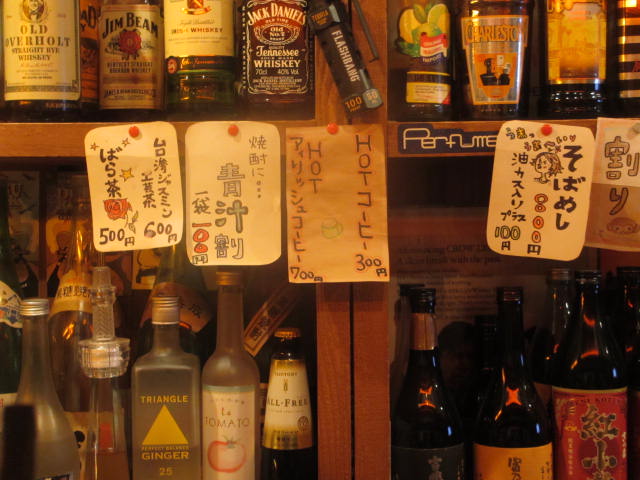 OLD
OVERHOLT
STRAIGHT RYE
WHISKEY
JIM BEAM
WHISKEY
JACK DANIEL'S
OLD
No.7
BRAND
Tennessee
WHISKEY
70cl 40% Vol
FLASHBANG
100
CHARLESTON
Perfume
台湾ジャスミン
600円
ばら茶
500円
焼酎に…
青汁割
一袋100円
HOTコーヒー
300円
HOT
アイリッシュコーヒー
700円
うまっ
そばめし
800円
油カス入りプラス
100円
割り
TRIANGLE
PERFECT BALANCE
GINGER
25
La
TOMATO
ALL-FREE
紅小